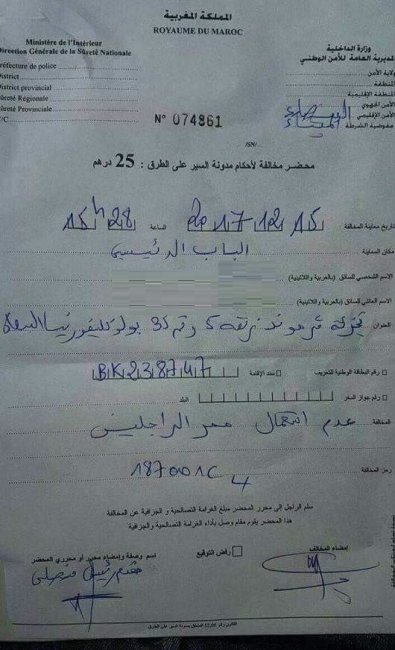 المملكة المغربية
ROYAUME DU MAROC
Ministère de l'Intérieur
Direction Générale de la Sûreté Nationale
Préfecture de police
District
District provincial
Sûreté Régionale
Sûreté Provinciale
وزارة الداخلية
المديرية العامة للأمن الوطني
ولاية الأمن
المنطقة
المنطقة الإقليمية
الأمن الجهوي
الأمن الإقليمي
مفوضية الشرطة
N° 074861
محضر مخالفة لأحكام مدونة السير على الطرق : 25 درهم
تاريخ معاينة المخالفة 17 12 15 الساعة 15h28
مكان المعاينة الباب الرئيسي
الاسم الشخصي للسائق (بالعربية واللاتينية)
الاسم العائلي للسائق (بالعربية واللاتينية)
العنوان زنقة 5 رقم 35
رقم البطاقة الوطنية للتعريف سند الإقامة BK238747
رقم جواز السفر البلد
المخالفة عدم استعمال ممر الراجلين
رمز المخالفة 187001C4
سلم الراجل إلى محرر المحضر مبلغ الغرامة التصالحية و الجزافية عن المخالفة
هذا المحضر يقوم مقام وصل بأداء الغرامة التصالحية والجزافية
إمضاء المخالف
رفض التوقيع
اسم وصفة وإمضاء محرر أو محرري المحضر